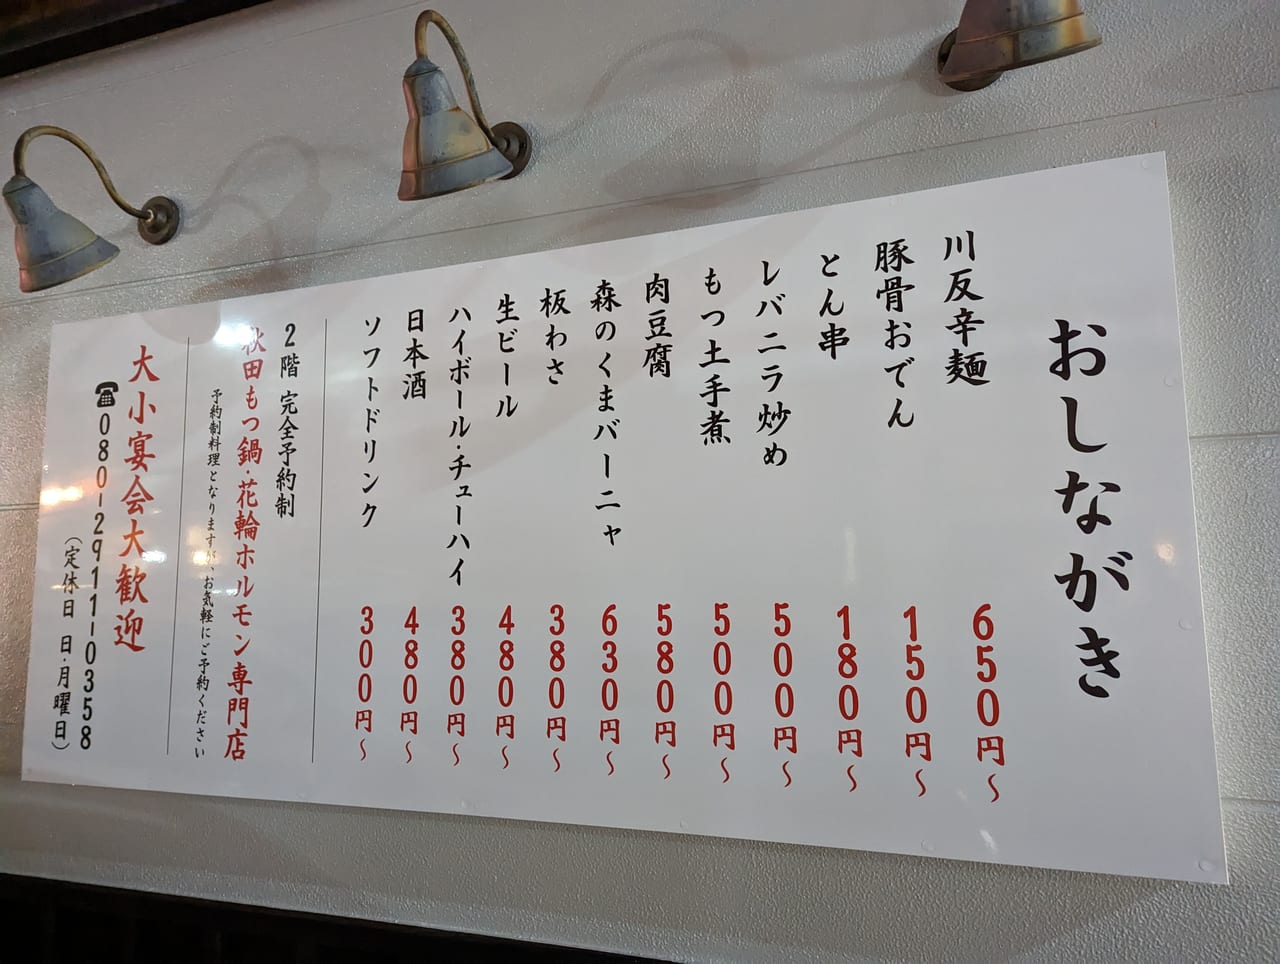 おしながき
川反辛麺 650円～
豚骨おでん 150円～
とん串 180円～
レバニラ炒め 500円～
もつ土手煮 500円～
肉豆腐 580円～
森のくまバーニャ 630円～
板わさ 380円～
生ビール 480円～
ハイボール・チューハイ 380円～
日本酒 480円～
ソフトドリンク 300円～
2階 完全予約制
秋田もつ鍋・花輪ホルモン専門店
予約制料理となりますが、お気軽にご予約ください
大小宴会大歓迎
☎080-2911-0358
（定休日 日・月曜日）